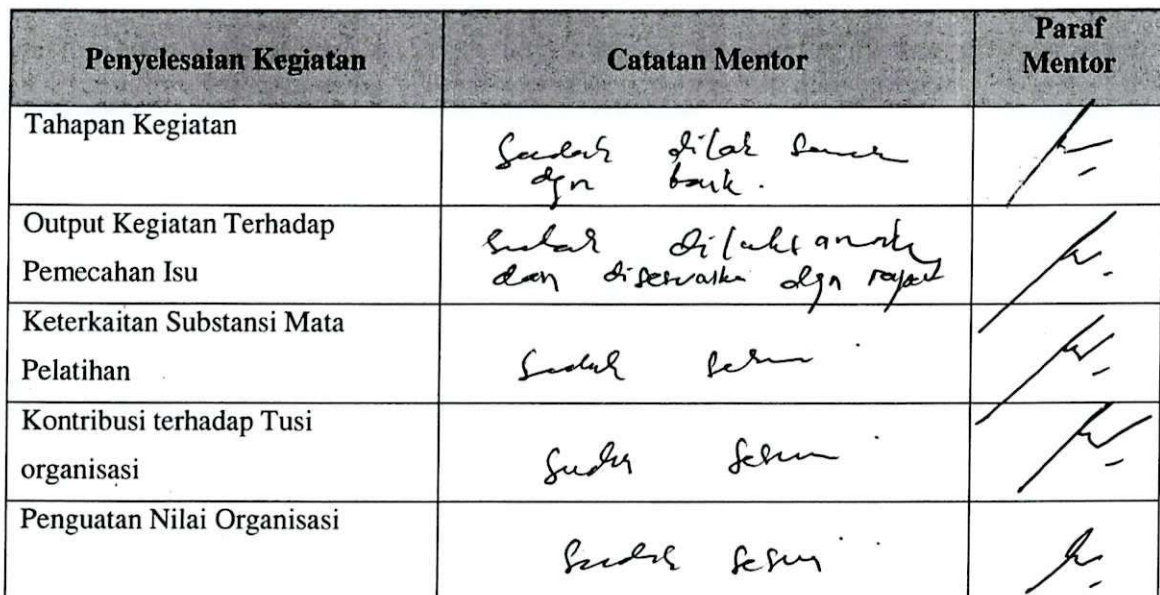 Penyelesaian Kegiatan
Catatan Mentor
Paraf
Mentor
Tahapan Kegiatan
Sudah
dgn baik.
Output Kegiatan Terhadap
Pemecahan Isu
Sudah
dan disesuaikan dgn
Keterkaitan Substansi Mata
Pelatihan
Sudah Sesuai
Kontribusi terhadap Tusi
organisasi
Sudah Sesuai
Penguatan Nilai Organisasi
Sudah Sesuai